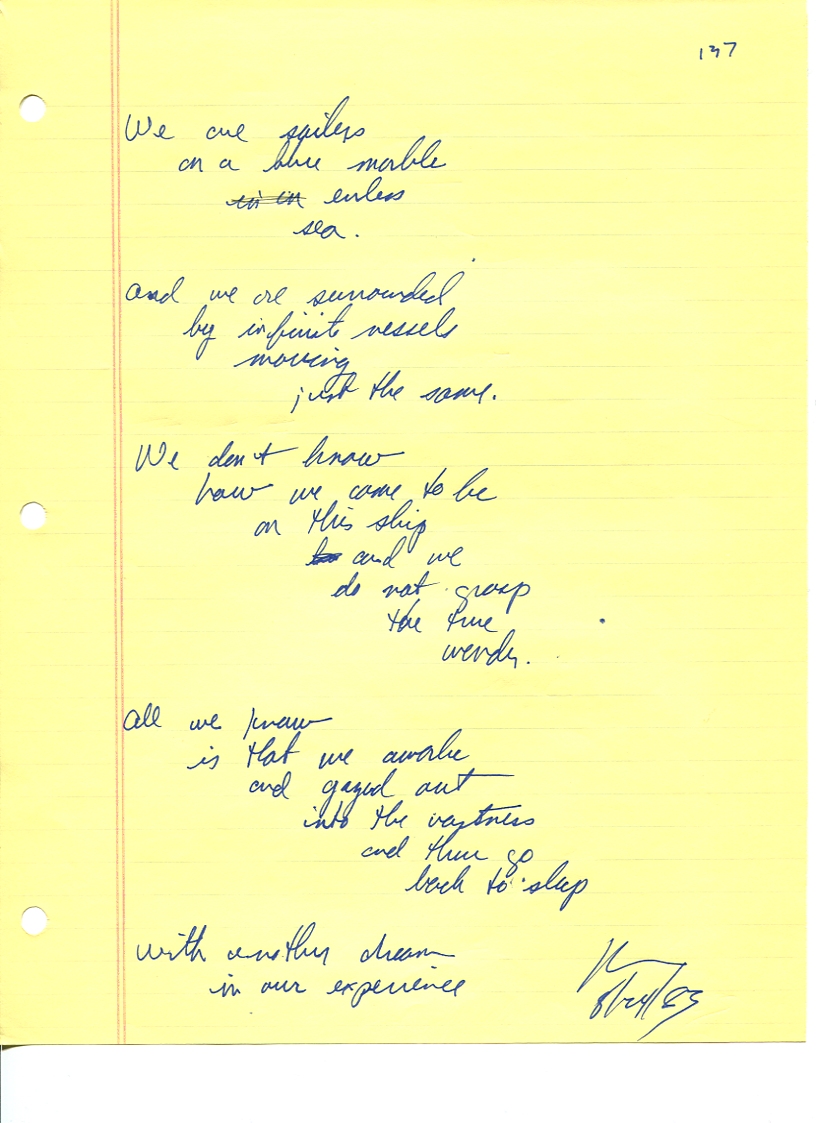 137
We are sailers
on a blue marble
in an enless
sea.
and we are surrounded
by infinite vessels
moving
just the same.
We don't know
how we came to be
on this ship
and we
do not grasp
the true
wonder.
All we know
is that we awake
and gazed out
into the vastness
and then go
back to sleep
with another dream
in our experience
8/24/83